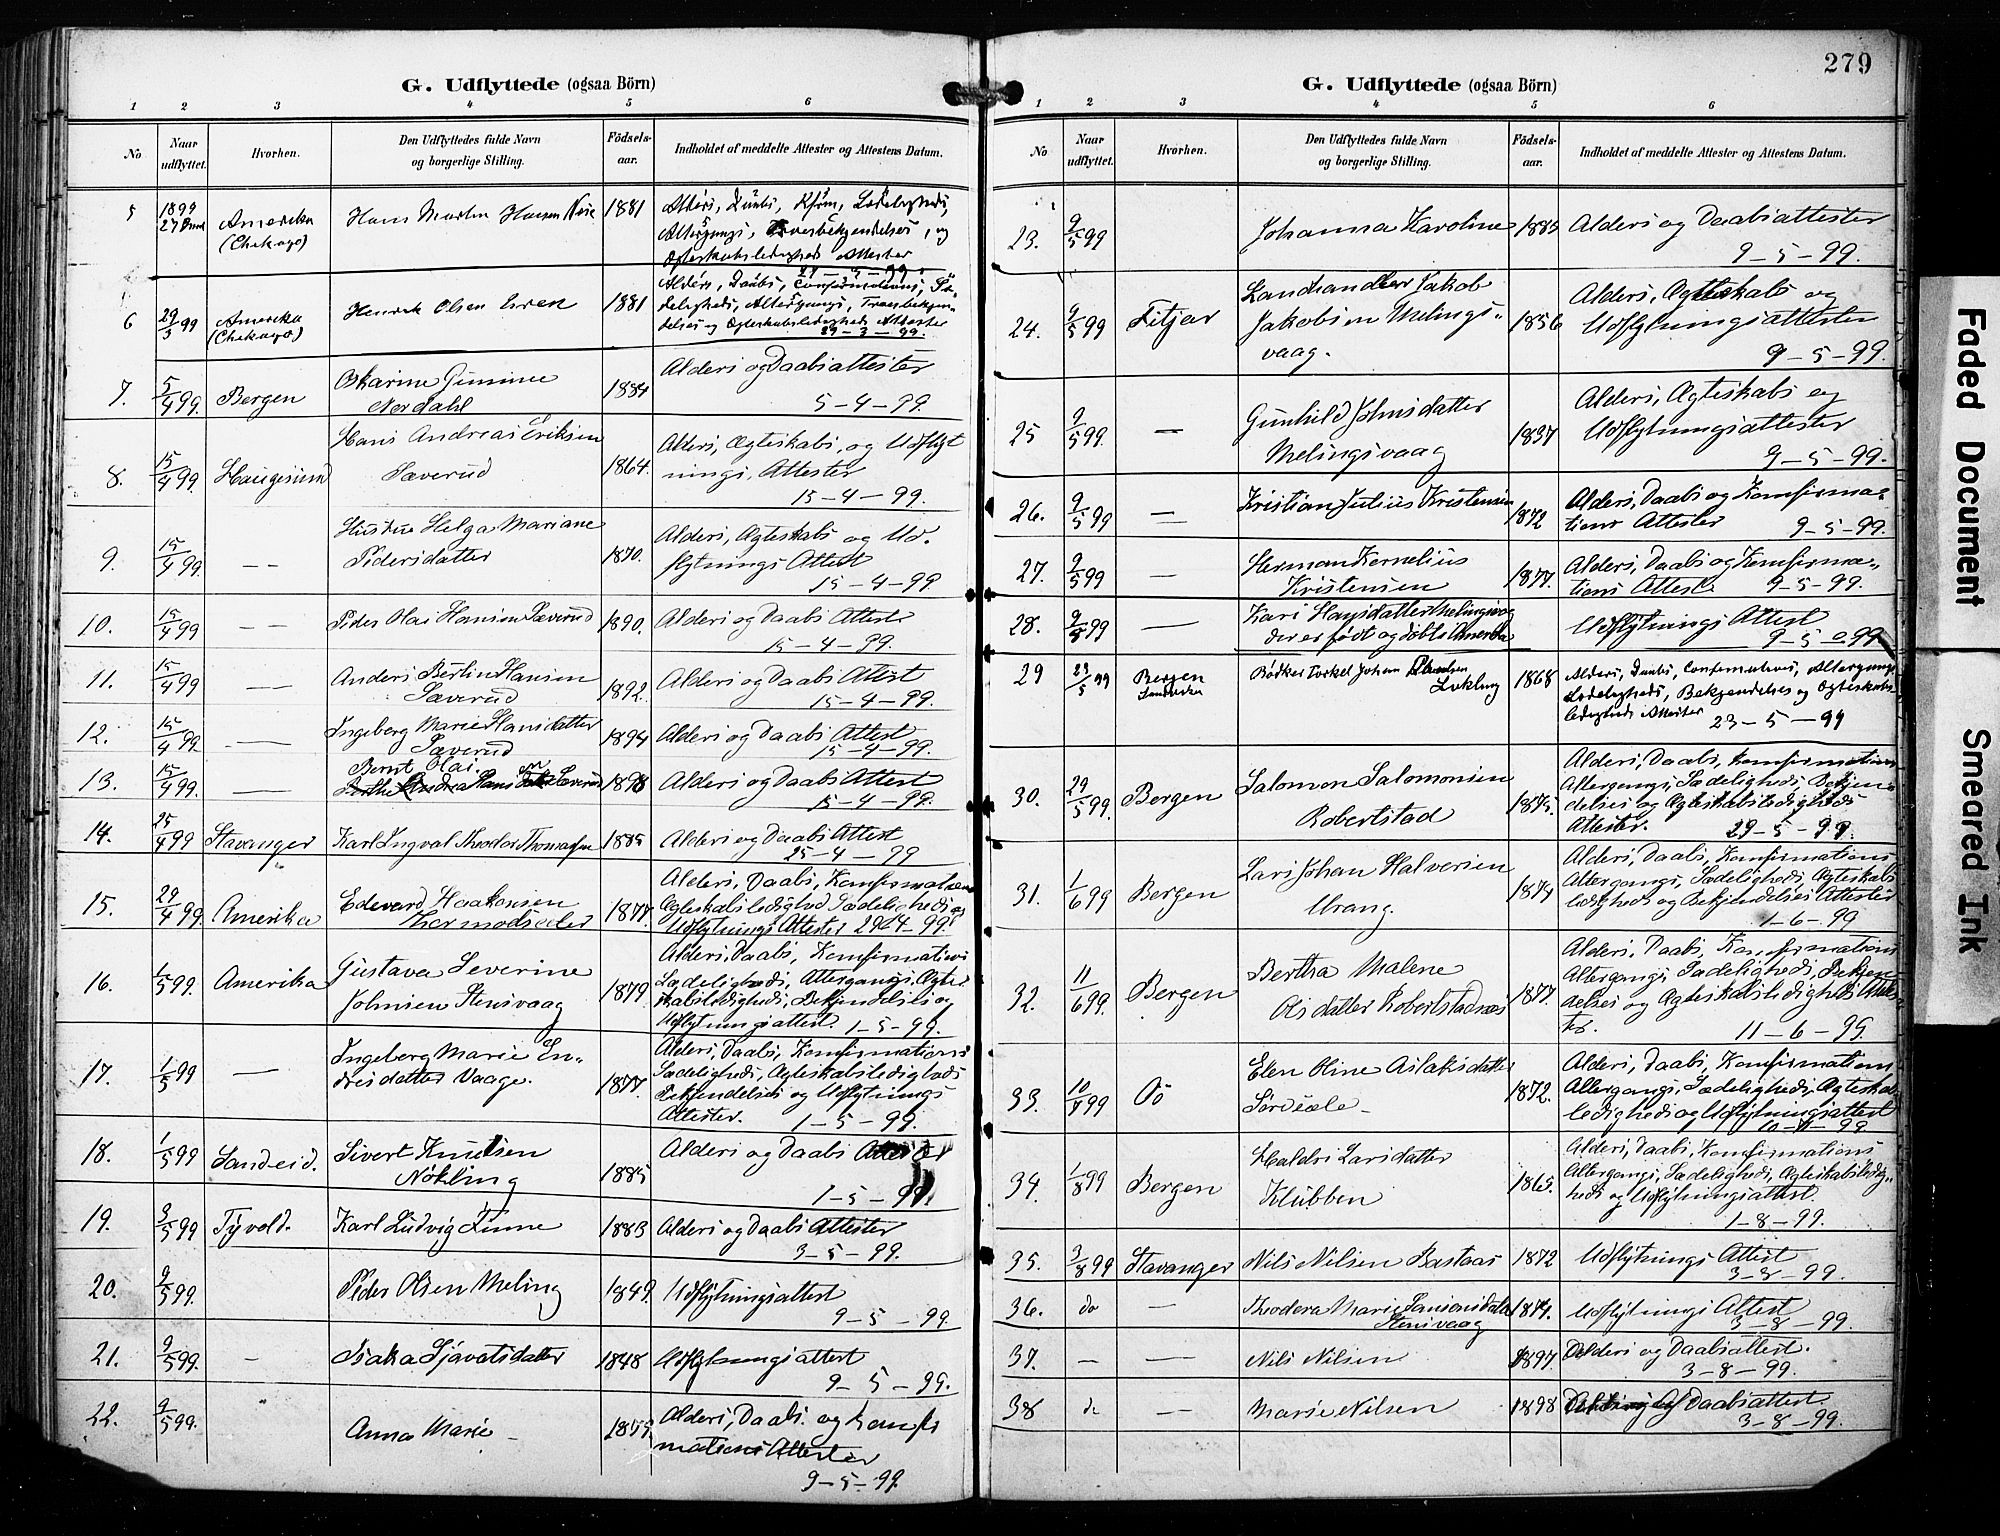 279
G. Udflyttede (ogsaa Börn)
1 2 3 4 5 6
No
Naar udflyttet.
Hvorhen.
Den Udflyttedes fulde Navn og borgerlige Stilling.
Födsels-aar.
Indholdet af meddelte Attester og Attestens Datum.
5 1899 27 Amerika (Chekago) Hans Martin Hansen 1881 Alders, Daabs, Lædeligheds,
Altergangs, og
Ægteskabsledigheds Attester
6 29/3 99 Amerika (Chekago) Henrik Olsen 1881 Alders, Daabs, Confirmations, Sæ-
deligheds, Altergangs,
delses og Ægteskabsledigheds Attester
29-3-99.
7. 5/4 99. Bergen Oskarine Gunine 1884 Alders og Daabsattester
Nordahl 5-4-99.
8. 15/4 99. Haugesund Hans Andreas Eriksen 1864. Alders, Ægteskabs, og Udflyt
Sæverud nings, Attester
15-4-99.
9. 15/4 99. -- Hustru Helga Mariane 1870. Alders, Ægteskabs og Ud-
Pedersdatter flytnings Attest
15-4-99.
10. 15/4 99 -- Peder Olai Hansen Sæverud 1890. Alders og Daabs Attest
15-4-99.
11. 15/4 99 — Anders Bertin Hansen 1892. Alders og Daabs Attest
Sæverud 15-4-99.
12. 15/4 99. — Ingeborg Marie Hansdatter 1894 Alders og Daabs Attest
Sæverud 15-4-99.
13. 15/4 99. — Bernt Olai
Hans Sæverud 1898 Alders og Daabs Attest
15-4-99.
14. 25/4 99 Stavanger Karl Ingval Theodor Thomassen 1885 Alders og Daabs Attest
25-4-99
15. 29/4 99. Amerika Edvard Haakonsen 1877. Alders, Daabs, Konfirmations
Ægteskabsledighed Sædeligheds og
Udflytnings Attester 29-4-99.
16. 1/5 99. Amerika Gustava Severine 1879. Alders, Daabs, Konfirmations
Johnsen Stensvaag Sædeligheds, Altergangs, Ægte-
skabsledigheds, Bekjendelses og
Udflytningsattest. 1-5-99.
17. 1/5 99 — Ingeborg Marie En- 1877. Alders, Daabs, Konfirmations
dresdatter Vaage. Sædeligheds, Ægteskabsledigheds
Bekjendelses og Udflytnings
Attester. 1-5-99.
18. 1/5 99 Sandeid. Sivert Knutsen 1885 Alders og Daabs Attester
Nökling 1-5-99.
19. 3/5 99 Tysvold. Karl Ludvig Tinne 1883 Alders og Daabs Attester
3-5-99.
20. 9/5 99. Peder Olsen Meling 1849. Udflytningsattest
9-5-99.
21. 9/5 99. — Isaka Sjøvatsdatter 1848 Udflytningsattest
9-5-99.
22. 9/5 99. " Anna Marie Alders, Daabs og Konfir
mations Attester
9-5-99.
G. Udflyttede (ogsaa Börn)
1 2 3 4 5 6
No
Naar udflyttet.
Hvorhen.
Den Udflyttedes fulde Navn og borgerlige Stilling.
Födsels-aar.
Indholdet af meddelte Attester og Attestens Datum.
23. 9/5 99 Johanna Karoline 1885 Alders og Daabsattester
9-5-99.
24. 9/5 99 Fitjar Landhandler Jakob 1856 Alders, Ægteskabs og
Jakobsen Melings- Udflytningsattester
vaag. 9-5-99.
25 9/5 99. — Gunhild Johnsdatter 1857 Alders, Ægteskabs og
Melingsvaag Udflytningsattester
9-5-99.
26. 9/5 99 — Kristian Julius Kristensen 1872 Alders, Daabs og Konfirma-
tions Attester 9-5-99.
27. 9/5 99 — Herman Kornelius 1877. Alders, Daabs og Konfirma-
Kristensen tions Attest 9-5-99.
28. 9/5 99 — Kari Hansdatter Melingsvaag Udflytnings Attest
der er født og døbt i Amerika 9-5-99.
29 23/5 99 Bergen Bødker Torkel Johan 1868 Alders, Daabs, Confirmations, Altergangs
Lokling Sædeligheds, Bekjendelses og Ægteskabs-
ledigheds Attester 23-5-99
30. 29/5 99. Bergen Salomon Salomonsen 1875. Alders, Daabs, Konfirmations
Robertstad Altergangs, Sædeligheds, Bekjen-
delses og Ægteskabsledigheds
Attester. 29-5-99.
31. 1/6 99 Bergen Lars Johan Halversen 1874 Alders, Daabs, Konfirmations
Urang. Altergangs, Sædeligheds, Ægteskabs
ledigheds og Bekjendelses Attester
1-6-99
32. 11/6 99. Bergen Bertha Malene 1877. Alders, Daabs, Konfirmations
Olsdatter Robertstadnæs Altergangs, Sædeligheds, Bekjen
delses og Ægteskabsledigheds Attes
ter. 11-6-99.
33. 10/7 99 Oö Elen Oline Aslaksdatter 1872. Alders, Daabs, Konfirmations
Altergangs, Sædeligheds, Ægteskabs
ledigheds og Udflytningsattest
34. 1/8 99 Bergen Haldri Larsdatter 1865. Alders, Daabs, Konfirmations
Klubben Altergangs, Sædeligheds, Ægteskabsledig-
heds og Udflytningsattest.
1-8-99.
35. 3/8 99 Stavanger Nils Nilsen Bastaas 1872 Udflytnings Attest
3-8-99.
36. do — Theodora Marie Samsonsdatter 1874. Udflytnings Attest
Stensvaag 3-8-99.
37. — — Nils Nilsen 1897. Alders og Daabsattest.
3-8-99.
38 do — Marie Nilsen 1898 Daabsattest
3-8-99.
Faded Document
Smeared Ink